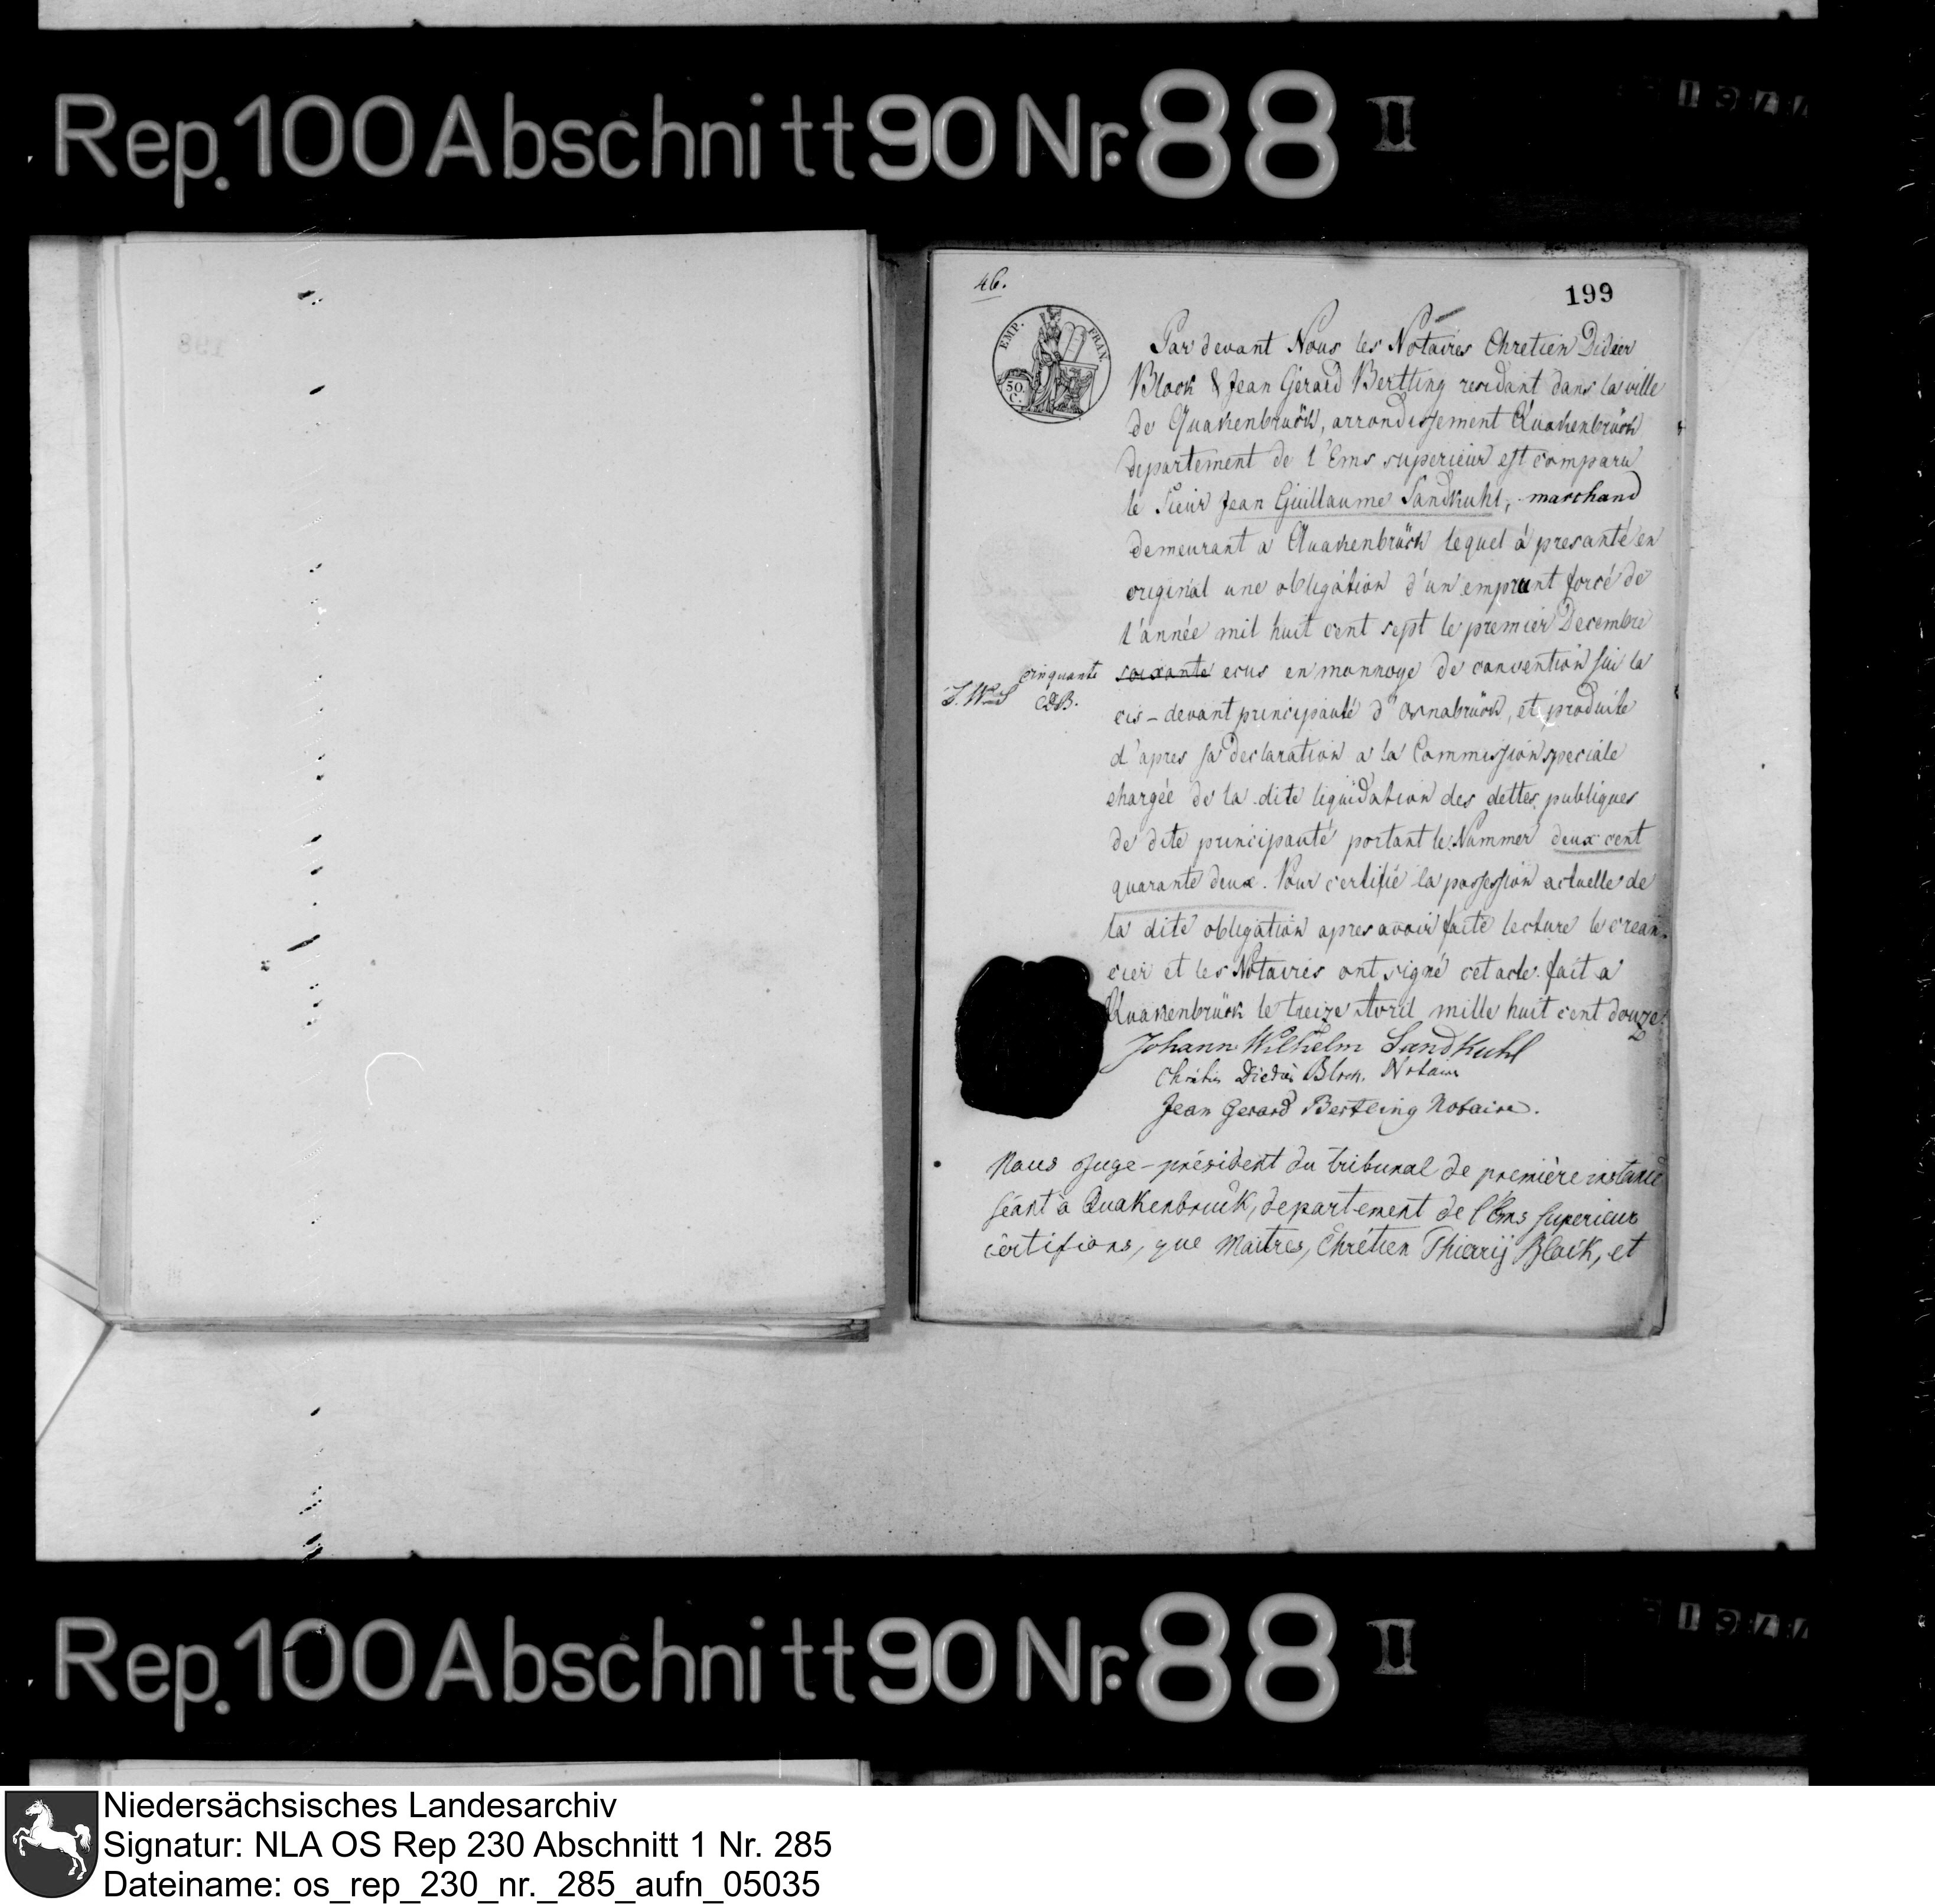 Rep. 100 Abschnitt 90 Nr. 88 II
46.
199
EMP. FRAN.
50 C.
Par devant Nous les Notaires Chretien Didier
Block & Jean Gerard Bertling residant dans la ville
de Quakenbrück, arrondissement Quakenbrück
departement de l'Ems superieur est comparu
le Sieur Jean Guillaume Sandkuhl, marchand
demeurant a Quakenbrück lequel á presanté en
original une obligátion d'un emprunt forcé de
l'année mil huit cent sept le premier Decembre
cinquante
CDB.
soixante ecus en monnoye de convention sui la
cis-devant principauté d'Osnabrück, et produite
d'apres sa declaration a la Commission speciale
chargée de la dite liquidation des dettes publiques
de dite principauté portant le Nummer deux cent
quarante deux. Pour certifié la possession actuelle de
la dite obligation apres avoir faite lecture le crean-
cier et les Notaires ont signé cet acte. fait a
Quakenbrück le treize Avril mille huit cent douze.
Johann Wilhelm Sandkuhl
Chrétien Diedier Block. Notaire
Jean Gerard Bertling Notaire.
Nous Juge-président du tribunal de première instance
séant à Quakenbruck, departement de l'Ems superieur
certifions, que Maitres, Chrétien Thierrij Block, et
Rep. 100 Abschnitt 90 Nr. 88 II
Niedersächsisches Landesarchiv
Signatur: NLA OS Rep 230 Abschnitt 1 Nr. 285
Dateiname: os_rep_230_nr._285_aufn_05035